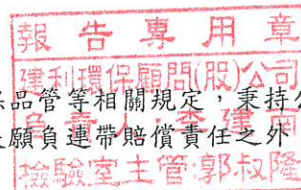 報告專用章
建利環保顧問(股)公司
保品管等相關規定，秉持公
負責人:李建
願負連帶賠償責任之外
檢驗室主管:郭叔隆